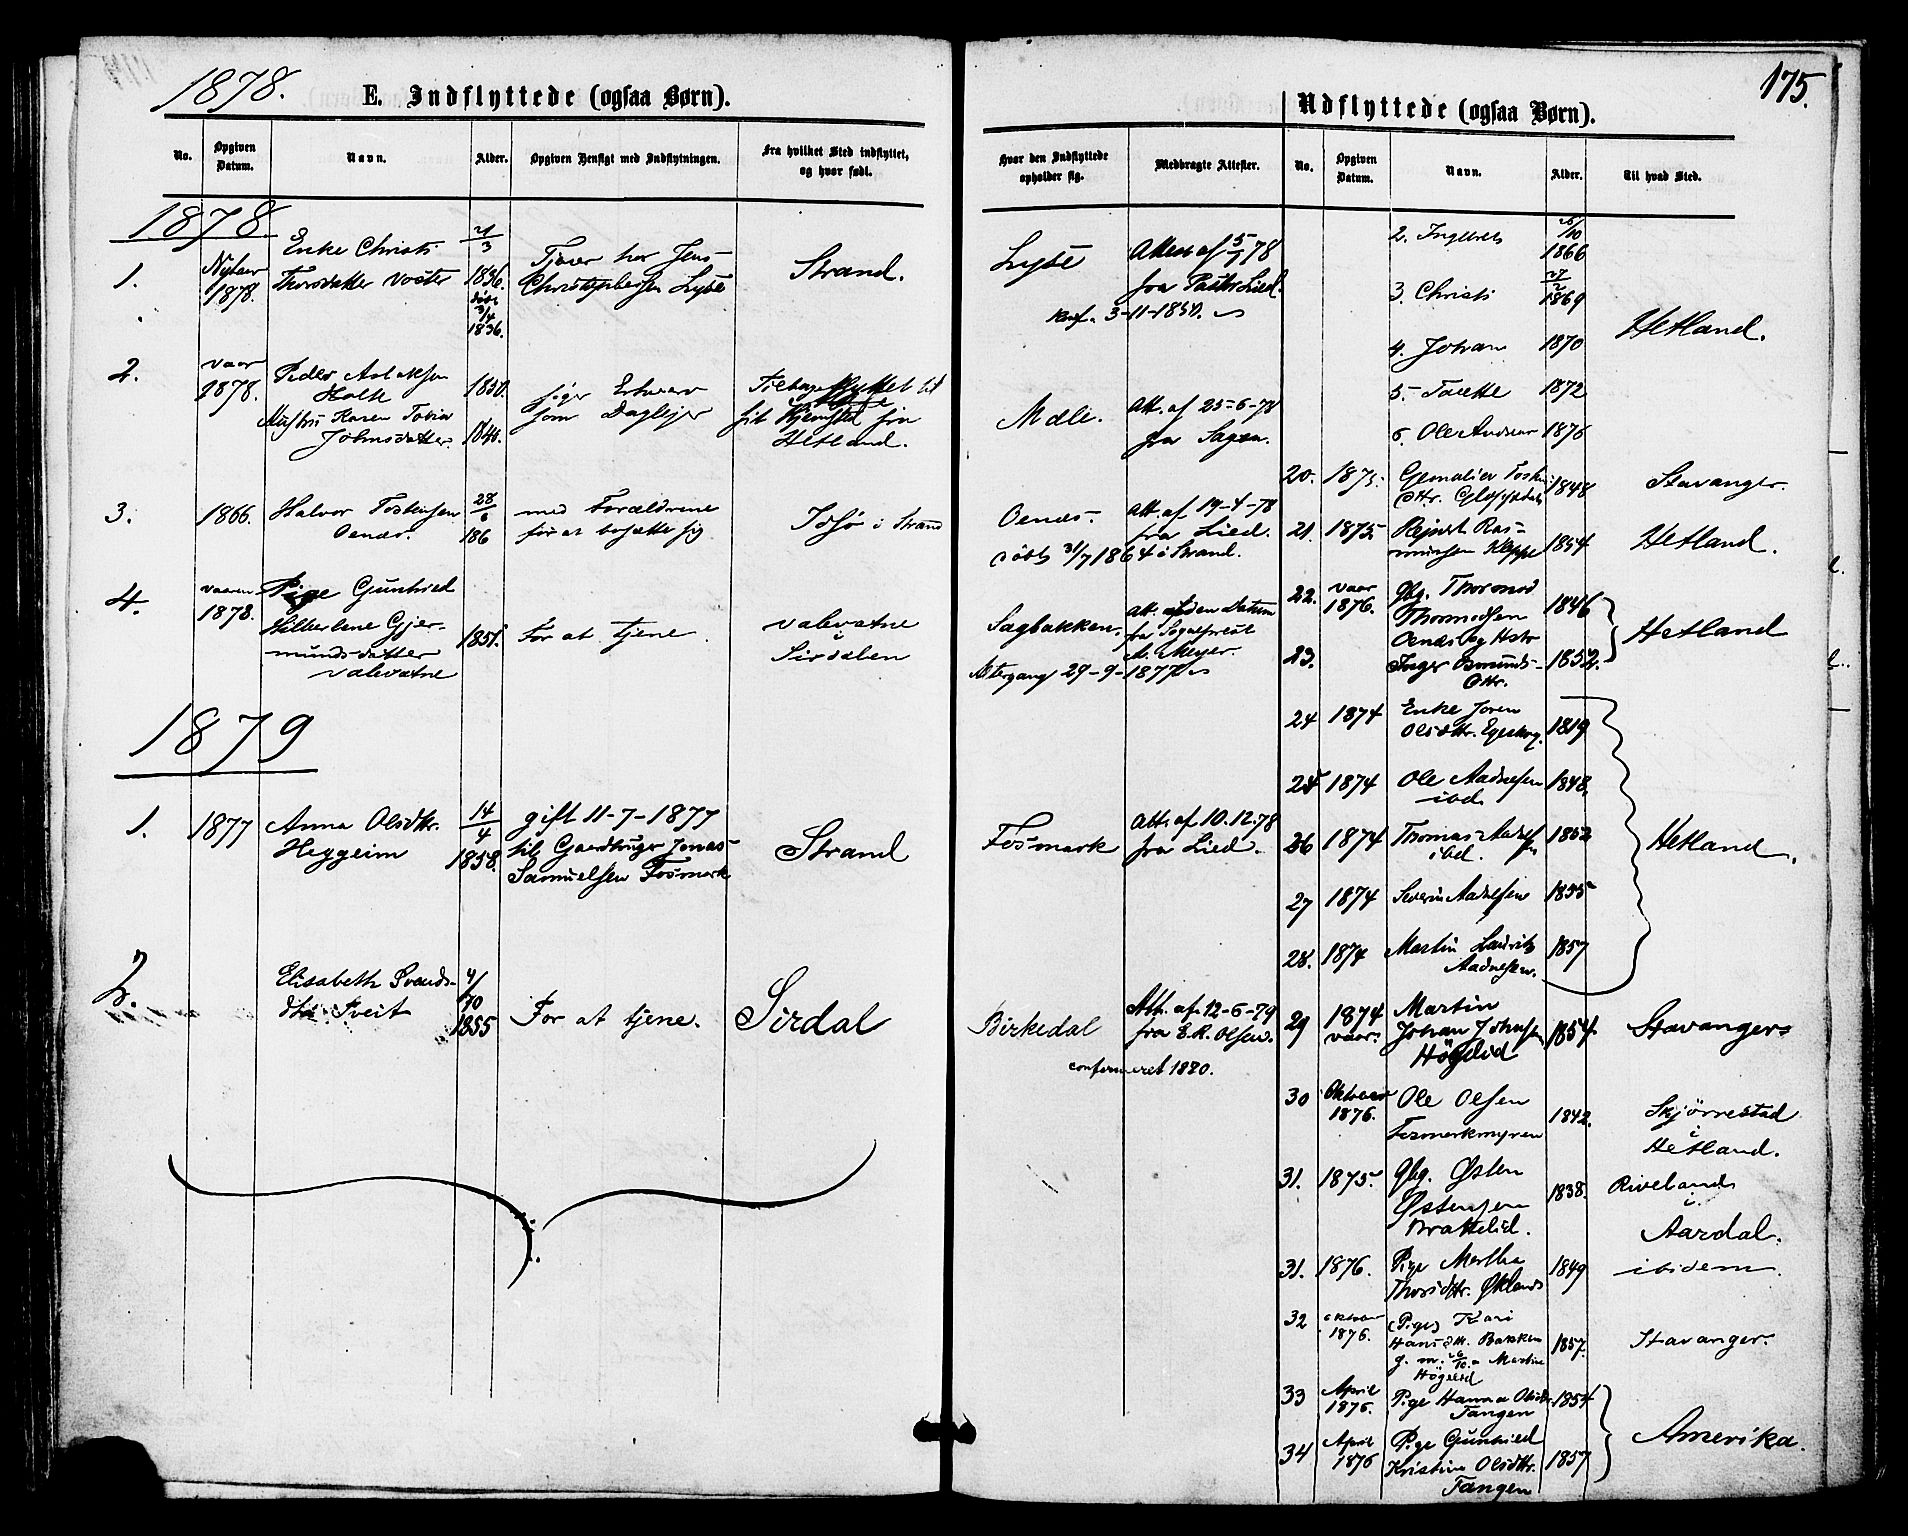 1878.
E. Indflyttede (ogsaa Børn).
No.
Opgiven Datum.
Navn.
Alder.
Opgiven Hensigt med Indflytningen.
Fra hvilket Sted indflyttet, og hvor født.
1878
1.
Nytaar 1878.
Enke Christi
Thorsdatter
21/3
1836.
døbt
3/4
1836.
Tjener hos Jens
Christophersen Lyse
Strand.
2.
vaar
1878.
Peder Aslaksen
Holte
1850.
Hustru Karen Tobia
Johnsdatter
søger Erhverv
som Daglejer
Tilbageflyttet til
sit Hjemsted fra
Hetland.
3.
1866.
Halvor Tostensen
Oenæs.
28/6
186
med Forældrene
for at bosætte sig
Idsø i Strand
4.
vaaren
1878.
Pige Gunhild
Gjer-
mundsdatter
Valevatne
1851.
For at tjene.
Valevatne
i
Sirdalen
1879
1.
1877
Anna Olsdtr.
Heggeim
14/4
1858.
gift 11-7-1877
til Gaardbruger Jonas
Samuelsen Fosmark
Strand
2.
Elisabeth Svends-
dtr. Tveit
4/10
1855
For at tjene.
Sirdal
175.
Udflyttede (ogsaa Børn).
Hvor den Indflyttede opholder sig.
Medbragte Attester.
No.
Opgiven Datum.
Navn.
Alder.
Til hvad Sted.
Lyse
Attest af 5/1 78
fra Pastor Lied.
Konf. 3-11-1850.
Mæle.
Att. af 25-6-78
fra Sagen.
Oenæs.
Att. af 19-4-78
fra Lied.
døbt 31/7 1864 i Strand.
Sagbakken.
Att. uden Datum
fra Sogneprest
A. Meyer.
Altergang 29-9-1877
Fosmark
Att. af 10.12.78
fra Lied.
Birkedal
Att. af 12-6-79
fra E.R. Olsen.
confirmeret 1820.
2. Ingebret
26/10
1866
3. Christi
1869
4. Johan 1870
5. Tarette 1872
6. Ole Andreas 1876
Hetland.
20. 1875. Gemalier Tosten
dtr. 1848 Stavanger.
21. 1875 Rejert Ras-
mussen Kleppe 1854 Hetland.
22. vaar
1876. Gbg. Thormod
Thormodsen
Oenæs og Hstr 1846
23. Inger Osmunds-
dtr. 1852.
Hetland
24 1874 Enke Joren
Olsdtr. Egeskog. 1819
25 1874 Ole Aadnesen
ibd. 1848.
26 1874 Thomas Aadnesen
ibd. 1852
27 1874 Severin Aadnesen 1855
28. 1874 Martin Lauritz
Aadnesen. 1857
Hetland.
29 1874
vaar. Martin
Johan Johnsen
Høgelid 1854. Stavanger
30 Oktober
1876. Ole Olsen
Fosmarkmyren 1842. Skjørrestad
i
Hetland.
31. 1875. Gbg. Østen
Østensen
Brattelid. 1838. Riveland
i
Aardal.
31. 1876. Pige Martha
Thorsdtr. Økland 1849 ibidem
32 oktober
1876. (Pige) Kari
Hansdtr. Bakken
g. m. Martin
Høgelid 1857. Stavanger.
33 April
1876. Pige Hanna Olsdtr.
Tangen 1854
34 April
1876 Pige Gunhild
Kristine Olsdtr.
Tangen 1857
Amerika.